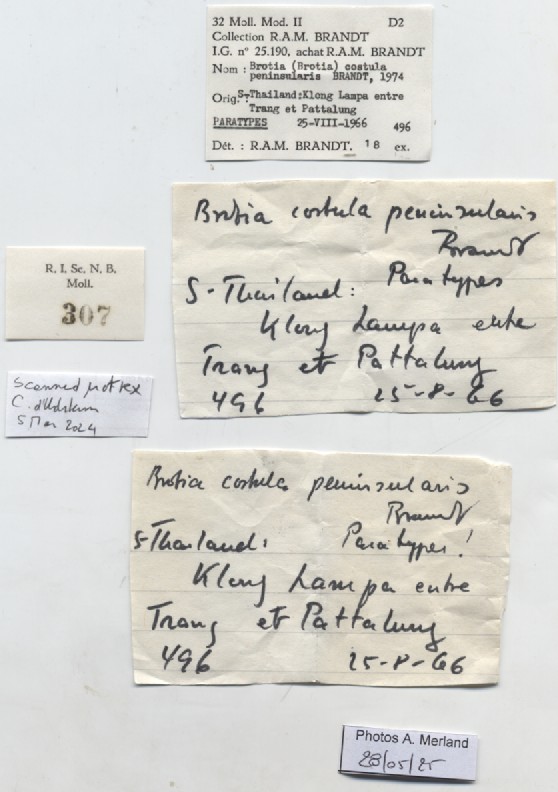 32 Moll. Mod. II D2
Collection R.A.M. BRANDT
I.G. n° 25.190, achat R.A.M. BRANDT
Nom : Brotia (Brotia) costula
peninsularis BRANDT, 1974
Orig.: S-Thailand:Klong Lampa entre
Trang et Pattalung
PARATYPES 25-VIII-1966 496
Dét. : R.A.M. BRANDT. 18 ex.
Brotia costula peninsularis
Brandt
Paratypes
S-Thailand:
Klong Lampa entre
Trang et Pattalung
496 25-8-66
R. I. Sc. N. B.
Moll.
307
Scanned
C.
5 Mar 2024
Brotia costula peninsularis
Brandt
S-Thailand: Paratypes!
Klong Lampa entre
Trang et Pattalung
496 25-8-66
Photos A. Merland
28/05/25